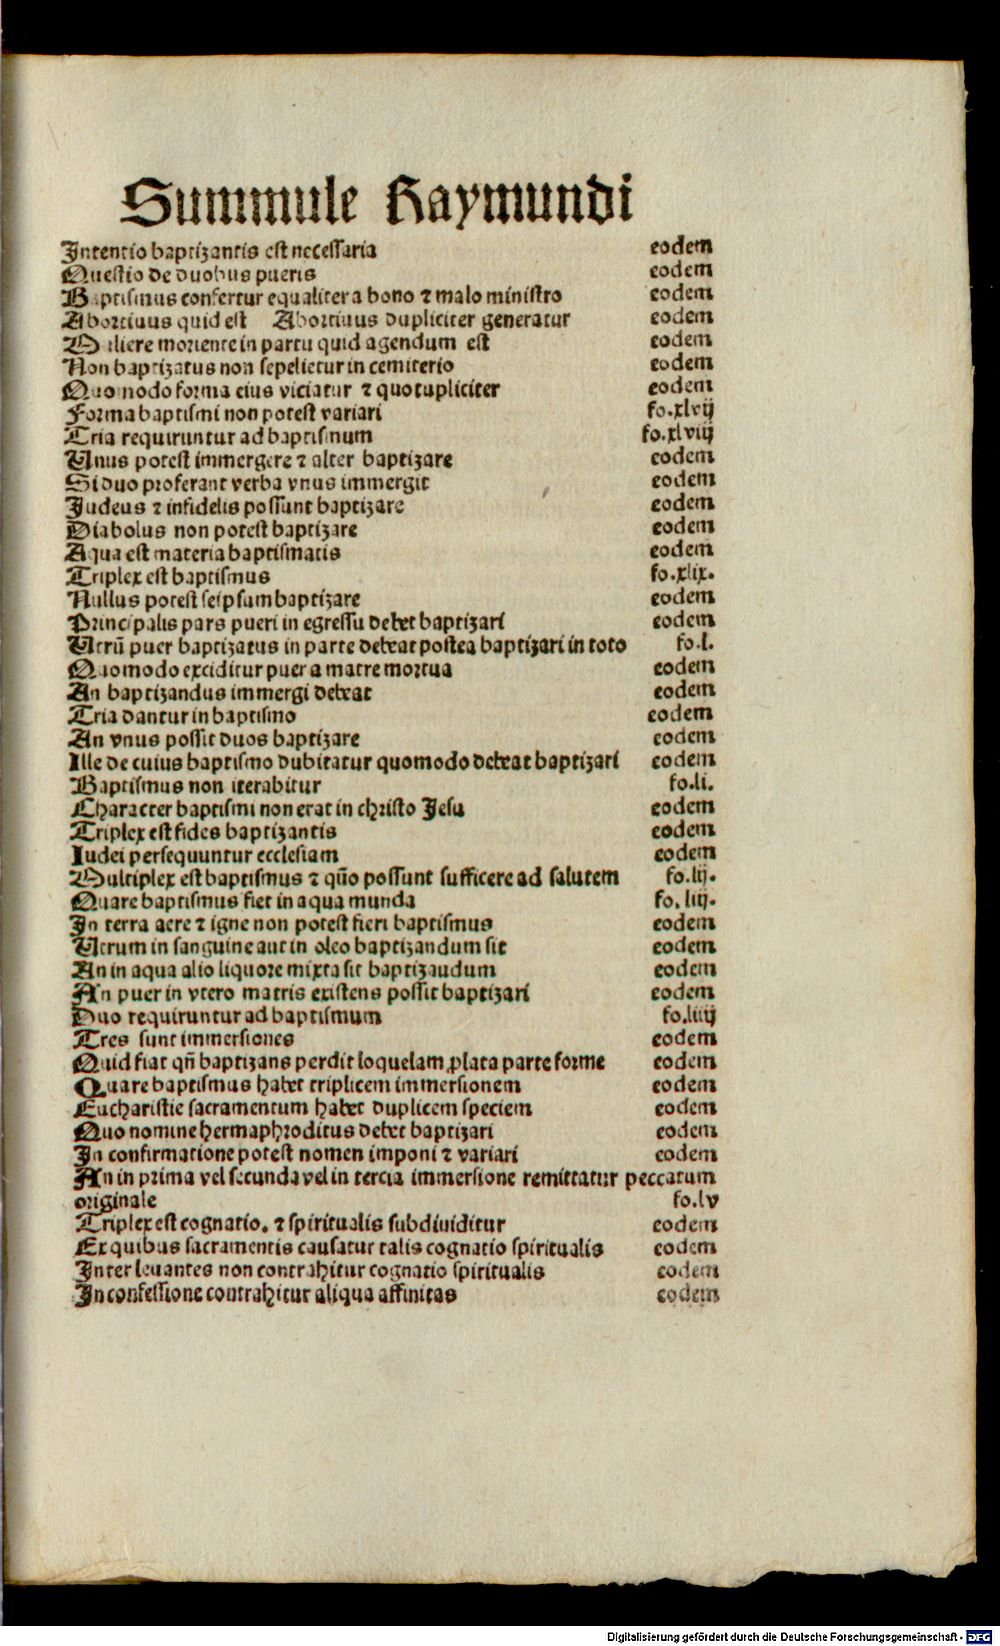 Summule Raymundi
Intentio baptizantis est necessaria eodem
Questio de duobus pueris eodem
Baptismus confertur equaliter a bono ⁊ malo ministro eodem
Abortiuus quid est Abortiuus dupliciter generatur eodem
Muliere moriente in partu quid agendum est eodem
Non baptizatus non sepelietur in cemiterio eodem
Quo nodo forma eius viciatur ⁊ quotupliciter eodem
Forma baptismi non potest variari fo.xlvij
Tria requiruntur ad baptismum fo.xlviij
Unus potest immergere ⁊ alter baptizare eodem
Si duo proferant verba vnus immergit eodem
Judeus ⁊ infidelis possunt baptizare eodem
Diabolus non potest baptizare eodem
Aqua est materia baptismatis eodem
Triplex est baptismus fo.xlix.
Nullus potest seipsum baptizare eodem
Principalis pars pueri in egressu debet baptizari eodem
Utrũ puer baptizatus in parte debeat postea baptizari in toto fo.l.
Quomodo exciditur puer a matre mortua eodem
An baptizandus immergi debeat eodem
Tria dantur in baptismo eodem
An vnus possit duos baptizare eodem
Ille de cuius baptismo dubitatur quomodo debeat baptizari eodem
Baptismus non iterabitur fo.li.
Character baptismi non erat in christo Jesu eodem
Triplex est fides baptizantis eodem
Iudei persequuntur ecclesiam eodem
Multiplex est baptismus ⁊ qũo possunt sufficere ad salutem fo.lij.
Quare baptismus fiet in aqua munda fo.liij.
In terra aere ⁊ igne non potest fieri baptismus eodem
Utrum in sanguine aut in oleo baptizandum sit eodem
An in aqua alio liquore mixta sit baptizaudum eodem
An puer in vtero matris existens possit baptizari eodem
Duo requiruntur ad baptismum fo.liiij
Tres sunt immersiones eodem
Quid fiat qñ baptizans perdit loquelam ꝓlata parte forme eodem
Quare baptismus habet triplicem immersionem eodem
Eucharistie sacramentum habet duplicem speciem eodem
Quo nomine hermaphroditus debet baptizari eodem
In confirmatione potest nomen imponi ⁊ variari eodem
An in prima vel secunda vel in tercia immersione remittatur peccatum
originale fo.lv
Triplex est cognatio. ⁊ spiritualis subdiuiditur eodem
Ex quibus sacramentis causatur talis cognatio spiritualis eodem
Inter leuantes non contrahitur cognatio spiritualis eodem
In confessione contrahitur aliqua affinitas eodem
Digitalisierung gefördert durch die Deutsche Forschungsgemeinschaft - DFG